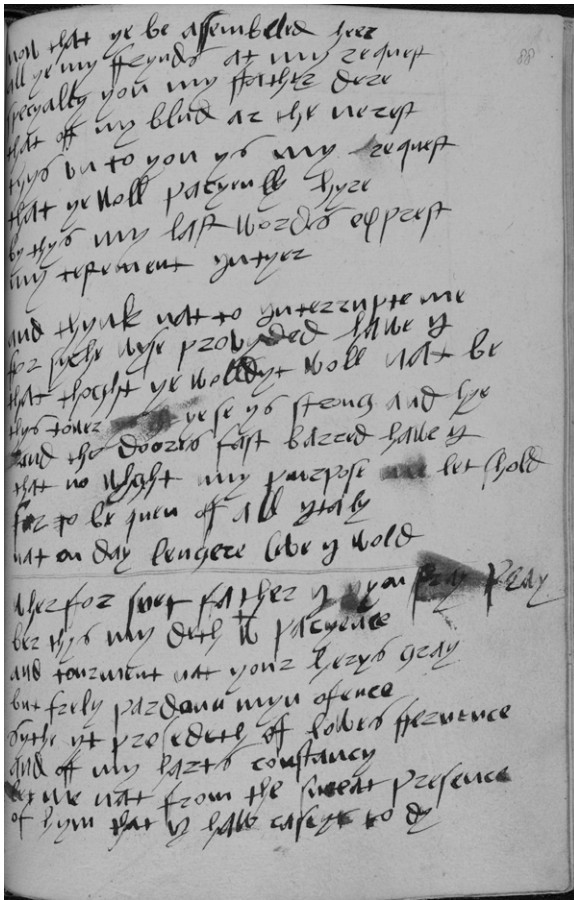 88
now that ye be assembled heer
all ye my ffrynds at my request
specyally you my ffather dere
that off my blud ar the nerest
thys vn to you ys my request
that ye woll pacyenlly hyre
by thys my last words exprest
my testement yntyer
and thynk nat to ynterrupte me
for syche wyse provyded have y
that thoght ye wolldyt woll nat be
thys touer yese ys strong and hye
and the doores fast barred have y
that no wyght my purpose let shold
for to be quen off all ytaly
nat on day lengere leve y wold
wherfor swet father y you pray
ber thys my deth w pacyence
and tourment nat your herys gray
but frely pardonn myn ofence
sythe yt presedeth off lowers ffervence
and off my harts constancy
let me nat from the sweat presence
of hym that y have casyt to dy